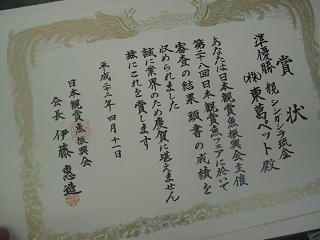 賞状
準優勝 親 シンガシラ琉金
(株)東萬ペット殿
あなたは日本観賞魚振興会主催
第二十八回日本観賞魚フェアに於いて
審査の結果頭書の成績を
収められました
誠に業界のため慶賀に堪えません
茲にこれを賞します
平成二十二年四月十一日
日本観賞魚振興会
会長 伊藤恵造